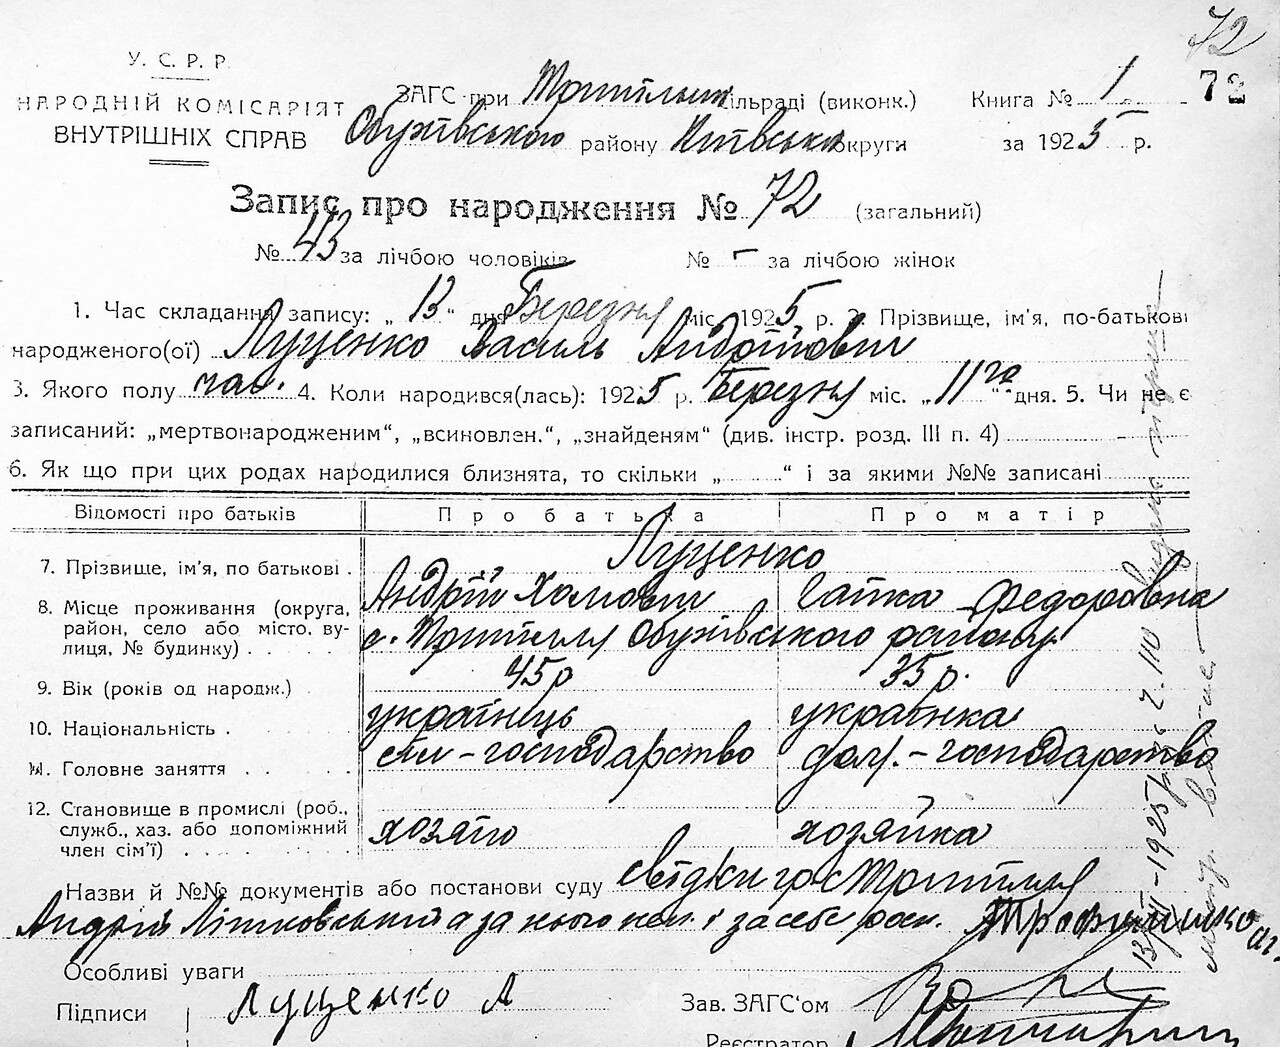 72
72
У. С. Р. Р.
НАРОДНІЙ КОМІСАРІЯТ
ВНУТРІШНІХ СПРАВ
ЗАГС при Трипільськ. сільраді (виконк.)
Книга № 1
Обухівського району Київська округи
за 1925 р.
Запис про народження № 72 (загальний)
№ 43 за лічбою чоловіків № - за лічбою жінок
1. Час складання запису: „ 13 “ дня Березня міс. 1925 р. 2. Прізвище, ім'я, по-батькові
народженого(ої) Луценко Василь Андрійович
3. Якого полу чол. 4. Коли народився(лась): 1925 р. Березня міс. „ 11го “ дня. 5. Чи не є
записаний: „мертвонародженим“, „всиновлен.“, „знайденям“ (див. інстр. розд. III п. 4) -
6. Як що при цих родах народилися близнята, то скільки „ “ і за якими №№ записані
Відомості про батьків Про батька Про матір
Луценко
7. Прізвище, ім'я, по батькові . Андрій Хомович Гапка Федоровна
8. Місце проживання (округа, район, село або місто, ву-
лиця, № будинку) с. Трипілля Обухівського району
9. Вік (років од народж.) 45 р 35 р.
10. Національність . українець українка
11. Головне заняття сіл-господарство дом.-господарство
12. Становище в промислі (роб., служб., хаз. або допоміжний
член сім'ї) хозяїн хозяйка
Назви й №№ документів або постанови суду свідки гр с Трипілля
Андрій Літковський а за нього неп. і за себе роз. Трофимenко
Особливі уваги
Підписи Луценко А
Зав. ЗАГС'ом
Реєстратор